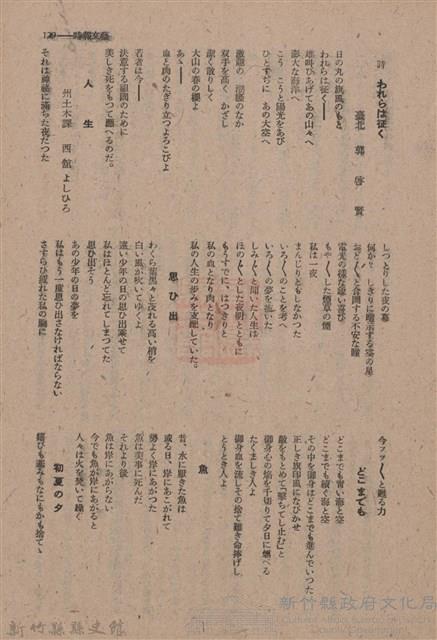 129——時報文藝
詩　われらは征く
臺北　郭　啓　賢
日の丸の旗風のもと
われらは征く——
雄叫びあげてあの山々へ
厖大な海洋へ
こうこうと陽光をあび
ひとすぢに　あの大空へ
双手を高く　かざし
潔く散りしく
大山の春の櫻よ
あゝ——
血と肉のたぎり立つよろこびよ
若者は今——
決意する祖國のために
美しき死をもつて闘へるのだ。
人　生
州土木課　西舘　よしひろ
それは神祕に滿ちた夜だつた
しつとりした夜の幕
何か？　しきりに暗示する空の星
電光の樣な強い喜び
もや〱した煙草の煙
私は一夜
まんじりともしなかつた
いろ〱のことを考へ
いろ〱の夢を描いた
しみ〲と聞いた人生は
ほの〲とした夜明とともに
もうすでに、はつきりと
私の血となり肉となり
私の人生の歩みを支配していた。
思　ひ　出
わくら葉黒々と茂れる高い梢を
白い風が吹いてゆくよ
遠い少年の日の思ひ出乘せて
私はほとんど忘れてしまつてた
思ひ出そう
あの少年の日の夢を
私はもう一度思ひ出さなければならない
さすらひ疲れた私の胸に
今フツ〱と甦る力
どこまでも
どこまでも青い海と空
どこまでも續く海と空
その中を御身はどこまでも進んでいつた
正しき旗印風になびかせ
敵をもとめて「撃ちてし止む」と
御身心の焰を千切りて夕日に燃へる
たくましき人よ
御身血を流しその捨て難き命捧げし
とうとき人よ
魚
昔、水に厭きた魚は
或る日、岸にあこがれて
勢よく岸にあがつた
魚は美事に死んだ
それより後
魚は岸にあがらない
今でも魚が岸にあがると
人々は火を焚いて騷ぐ
初夏の夕
歡びも悲みもなにもかも捨てゝ
新竹縣政府文化局
新竹縣縣史館